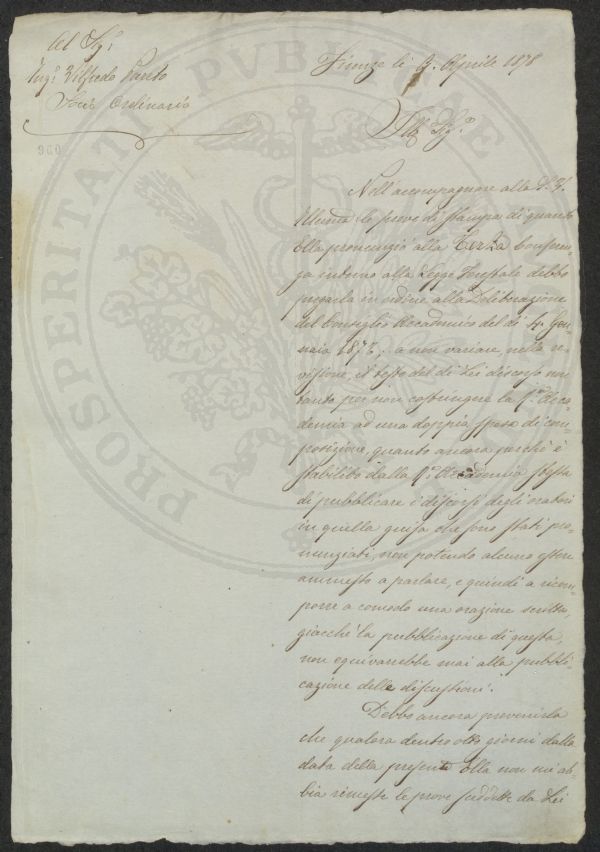 Al Sig.r
Ing.r Vilfredo Pareto
Socio Ordinario
960
Firenze li Aprile 1878
Ill. Sig.e
Nell'accompagnare alla S. V.
Illuma le prove di stampa di quanto
Ella pronunziò alla Terza Conferen-
za intorno alla Legge Forestale debbo
pregarla in ordine alla Deliberazione
del Consiglio Accademico del dì 4 Gen-
naio a non variare, nella re-
visione, il testo del di Lei discorso non
tanto per non costringere la R. Acca-
demia ad una doppia spesa di com-
posizione, quanto ancora perchè è
stabilito dalla R. Accademia stessa
di pubblicare i discorsi degli oratori
in quella guisa che sono stati pro-
nunziati, non potendo alcuno essere
ammesso a parlare, e quindi a ricom-
porre a comodo una orazione scritta,
giacchè la pubblicazione di questa,
non equivarrebbe mai alla pubbli-
cazione delle discussioni.
Debbo ancora prevenirla
che qualora dentro otto giorni dalla
data della presente Ella non mi ab-
bia rimesse le prove suddette da Lei
PROSPERITATI PVBLICAE